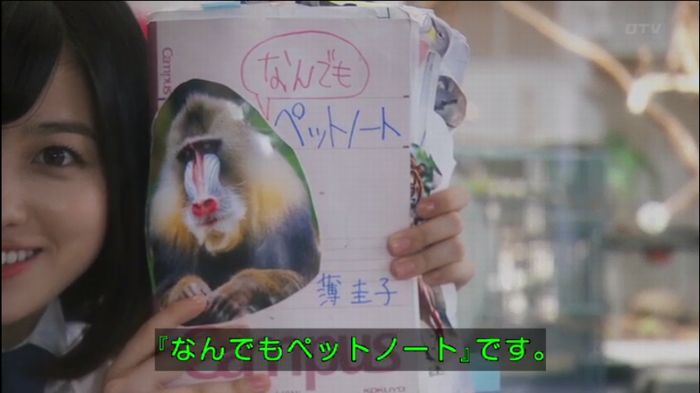 DTV
Campus
なんでも
ペットノート
薄圭子
『なんでもペットノート』です。
Campus
KOKUYO